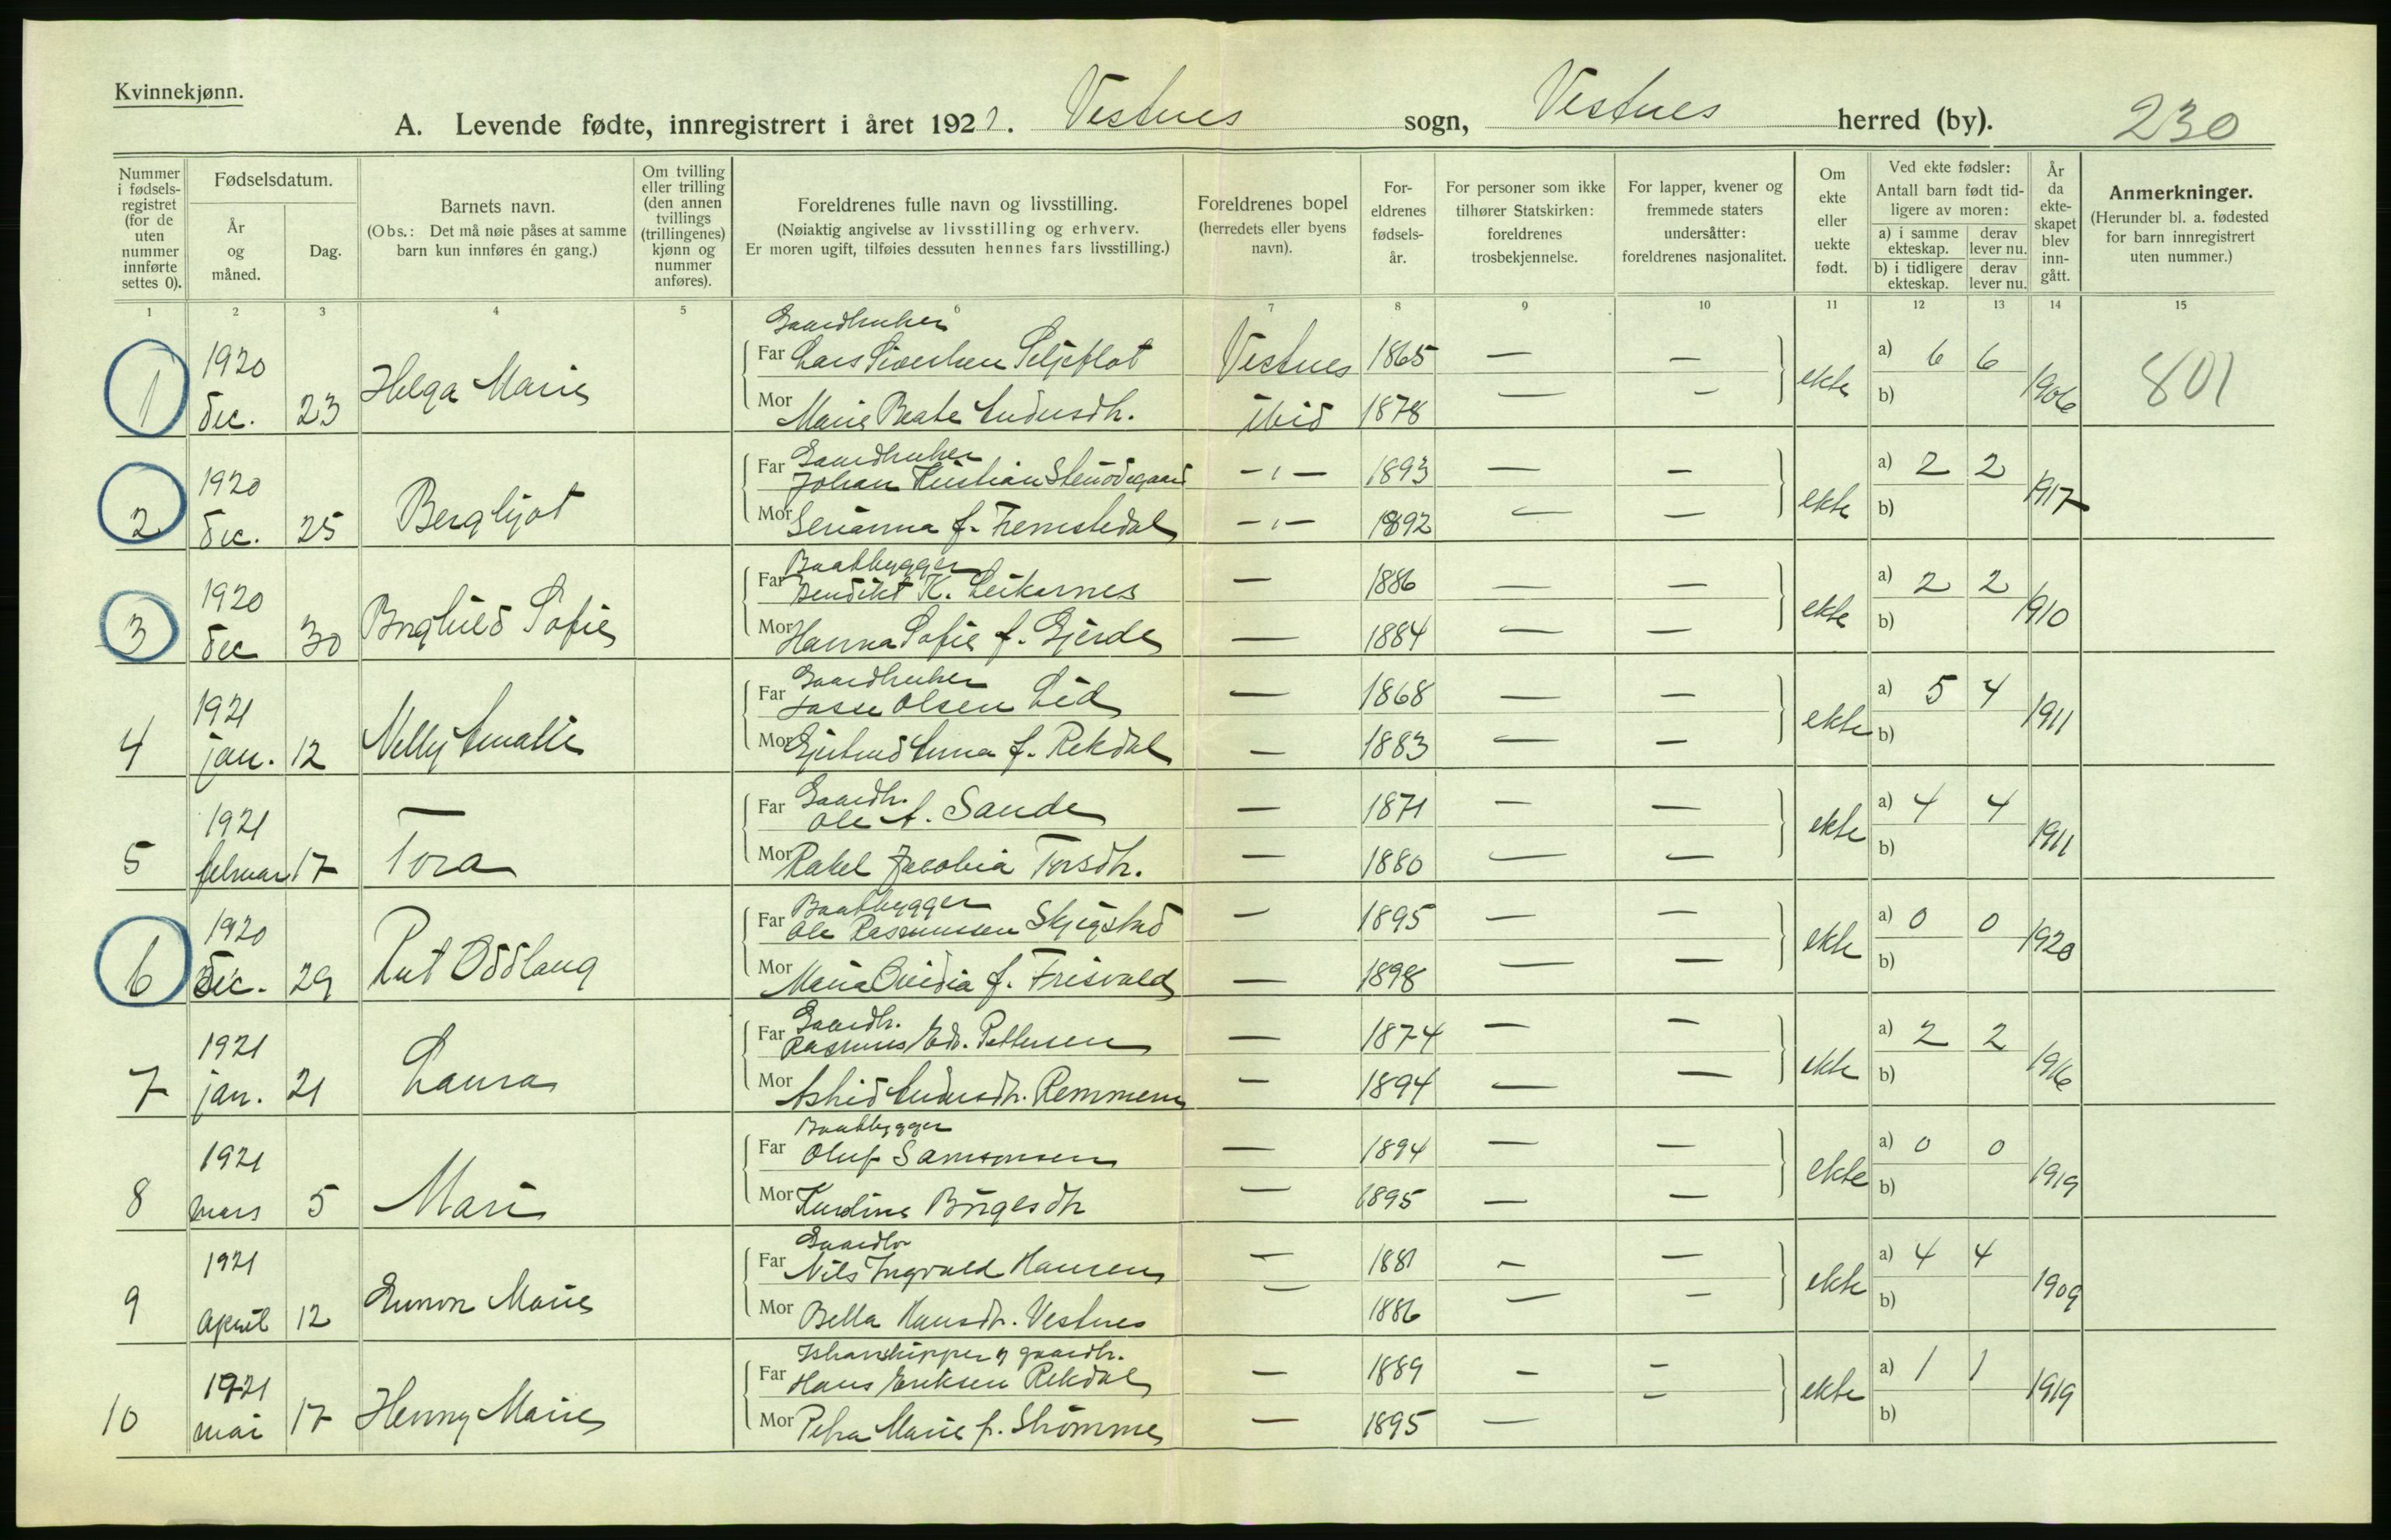 Kvinnekjønn.
A. Levende fødte, innregistrert i året 1921. Vestnes sogn, Vestnes herred (by). 230
Nummer i fødselsregistret (for de uten nummer innførte settes 0).
Fødselsdatum.
År og måned.
Dag.
Barnets navn.
(Obs.: Det må nøie påses at samme barn kun innføres én gang.)
Om tvilling eller trilling (den annen tvillings (trillingenes) kjønn og nummer anføres).
Foreldrenes fulle navn og livsstilling.
(Nøiaktig angivelse av livsstilling og erhverv.
Er moren ugift, tilføies dessuten hennes fars livsstilling.)
Foreldrenes bopel (herredets eller byens navn).
Foreldrenes fødselsår.
For personer som ikke tilhører Statskirken: foreldrenes trosbekjennelse.
For lapper, kvener og fremmede staters undersåtter: foreldrenes nasjonalitet.
Om ekte eller uekte født.
Ved ekte fødsler:
Antall barn født tidligere av moren:
a) i samme ekteskap. derav lever nu.
b) i tidligere ekteskap. derav lever nu.
År da ekteskapet blev inngått.
Anmerkninger.
(Herunder bl. a. fødested for barn innregistrert uten nummer.)
1 2 3 4 5 6 7 8 9 10 11 12 13 14 15
Gaardbruker
1 1920 Dec. 23 Helga Marie Far Lars Sivertsen Seljeflot Vestnes 1865 — — ekte a) 6 6 1906 801
Mor Marie Beate Andersdtr. ibid 1878 — — b)
Gaardbruker
2 1920 Dec. 25 Bergljot Far Johan Kristian Stenødegaard -"- 1893 — — ekte a) 2 2 1917
Mor Serianna f. Fremstedal -"- 1892 — — b)
Baatbygger
3 1920 Dec 30 Borghild Sofie Far Bendikt K. Leikarnes — 1886 — — ekte a) 2 2 1910
Mor Hanna Sofie f. Gjerde — 1884 — — b)
Gaardbruker
4 1921 jan. 12 Nelly Amalie Far Lasse Olsen Lid — 1868 — — ekte a) 5 4 1911
Mor Gjertrud Anna f. Rekdal — 1883 — — b)
Gaardbr.
5 1921 februar 17 Tora Far Ole A. Sande — 1871 — — ekte a) 4 4 1911
Mor Rakel Jacobia Torsdtr. — 1880 — — b)
Baatbygger
6 1920 Dec. 29 Rut Oddlaug Far Ole Rasmussen Skjegstad — 1895 — — ekte a) 0 0 1920
Mor Maria Ovidia f. Frisvald — 1898 — — b)
Gaardbr.
7 1921 jan. 21 Laura Far Rasmus Edv. Pettersen — 1874 — — ekte a) 2 2 1916
Mor Astrid Andersdtr. Remmem — 1894 — — b)
Baatbygger
8 1921 mars 5 Mari Far Oluf Samsonsen — 1894 — — ekte a) 0 0 1919
Mor Birgesdtr — 1895 — — b)
Gaardbr
9 1921 April 12 Gunvor Marie Far Nils Ingvald Hansen — 1881 — — ekte a) 4 4 1909
Mor Bella Hansdtr. Vestnes — 1886 — — b)
gaardbr.
10 1921 mai 17 Henny Marie Far Hans Eriksen Rekdal — 1889 — — ekte a) 1 1 1919
Mor Petra Marie f. Strømme — 1895 — — b)